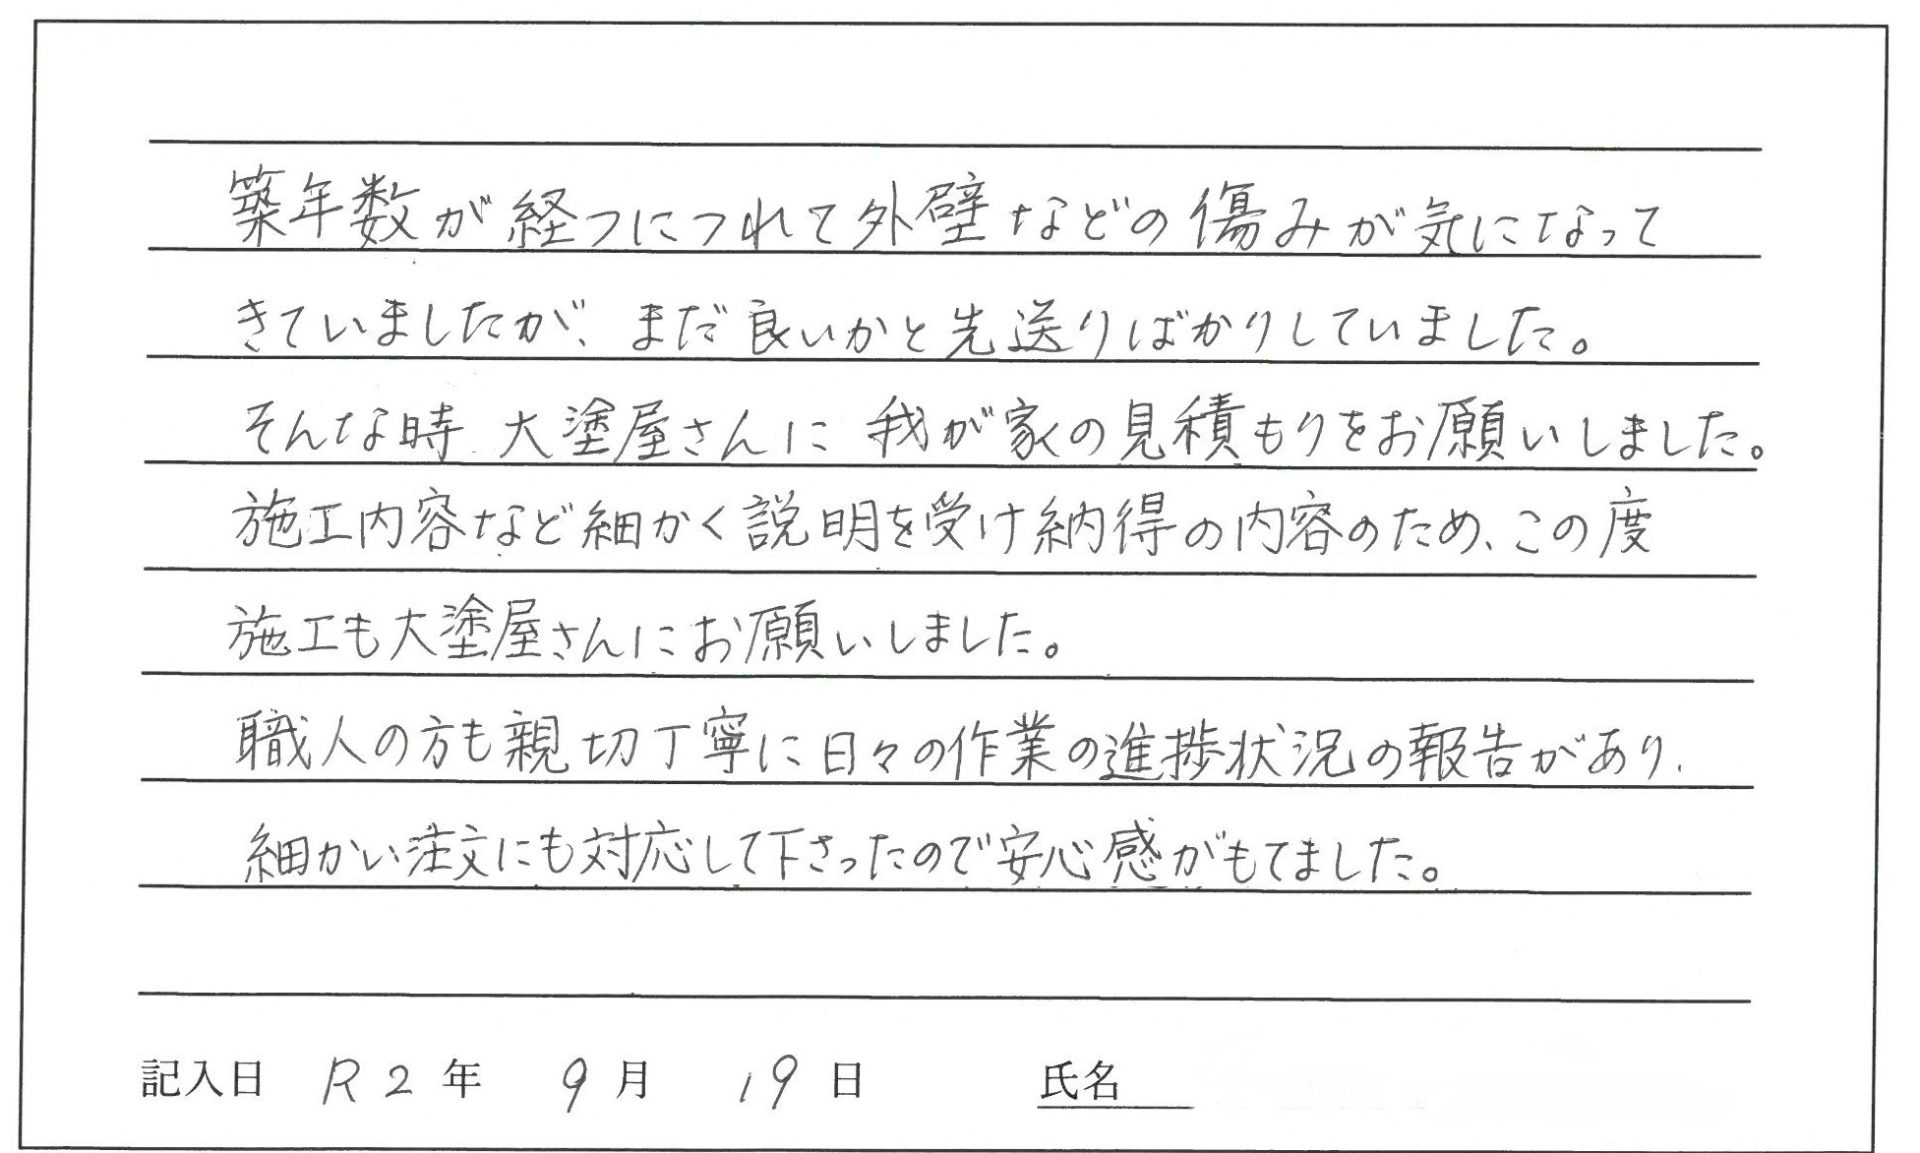 築年数が経つにつれて外壁などの傷みが気になって
きていましたが、まだ良いかと先送りばかりしていました。
そんな時 大塗屋さんに 我が家の見積もりをお願いしました。
施工内容など細かく説明を受け納得の内容のため、この度
施工も大塗屋さんにお願いしました。
職人の方も親切丁寧に日々の作業の進捗状況の報告があり、
細かい注文にも対応して下さったので安心感がもてました。
記入日 R2年 9月 19日 氏名